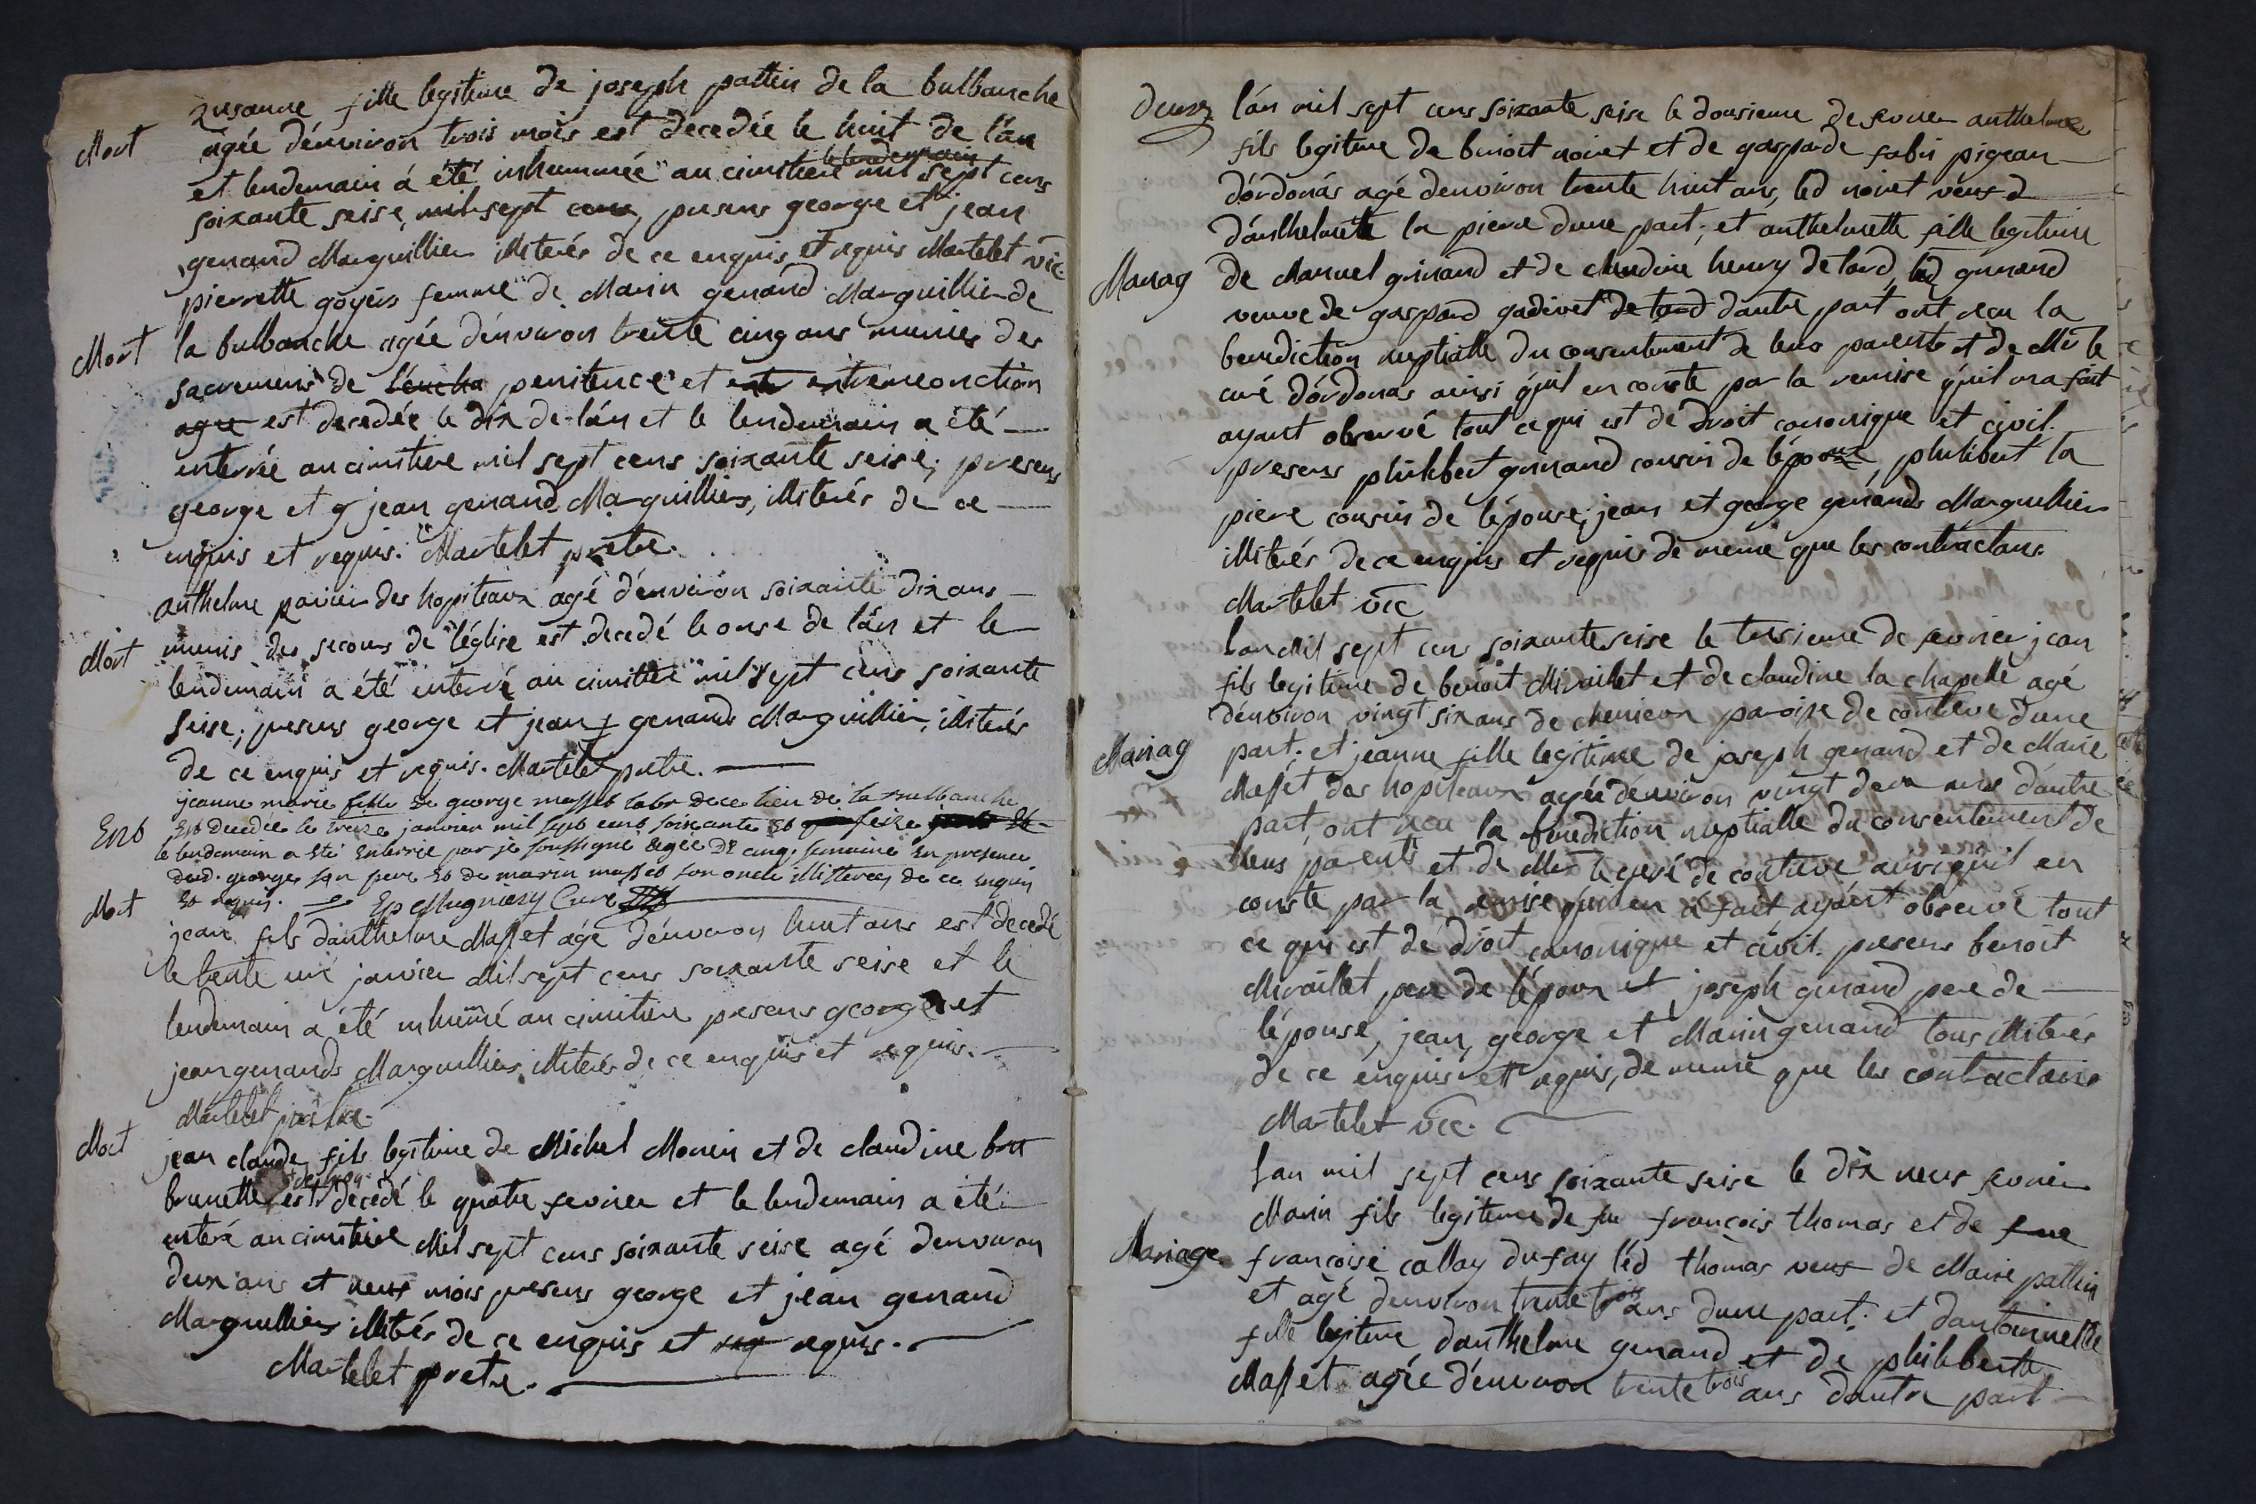 zusanne fille legitime de joseph pattin de la bulbanche
Mort agée d'environ trois mois est decedée le huit de l'án
et lendemain á été inhummée au cimitiere le lendemain mil sept cens
soixante seise, mil sept cens, presens george et jean
genand Marguillier illiterés de ce enquis et requis Martelet vic
pierrette goyer femme de Marin genand Marguillier de
Mort la bulbanche agée d'environ trente cinq ans munies des
sacremens de l'eucha penitence et ext extremeonction
agée est decedée le dix de l'án et le lendemain a été
enterrée au cimitiere mil sept cens soixante seise; presens
george et g jean genand Marguilliers, illiterés de ce
enquis et requis. Martelet pretre.
anthelme des hopiteaux agé d'environ soixante dix ans
Mort munis des secours de l'église est decedé le onse de l'án et le
lendemain a été enterré au cimitiere mil sept cens soixante
seise; presens george et jean genands Marguillier, illiterés
de ce enquis et requis. Martelet pretre.
jeanne marie fille de george masset labr de ce lieu de la bulbanche
Ent est decedée le treize janvier mil sept cent soixante et seize et
le lendemain a eté enterrée par je soussigné agée de cinq semaine en presence
dud. george son pere et de marin masset son oncle illitterez de ce enquis
et requis. Mugniery Curé
Mort jean fils d'anthelme Masset agé d'environ huit ans est decedé
le trente un janvier Mil sept cens soixante seise et le
lendemain a été inhumé au cimitiere presens george et
jean genands Marguilliers illiterés de ce enquis et requis.
Martelet pretre.
Mort jean claude fils legitime de Michel Monin et de claudine bru
brunette est decedé le quatre fevrier et le lendemain a été
enterré au cimitiere Mil sept cens soixante seise agé d'environ
deux ans et neuf mois presens george et jean genand
Marguilliers illiterés de ce enquis et req requis.
Martelet pretre.
deux l'án mil sept cens soixante seise le dousieme de fevrier anthelme
fils legitime de benoit noivet et de gasparde fabri pigeon
d'órdonás agé d'environ trente huit ans, led noivet veuf d
d'ánthelmette la pierre d'une part; et anthelmette fille legitime
Mariag de Manuel grinand et de claudine henry de lord, led grinand
veuve de gaspard gadivet de lord d'autre part ont recu la
benediction nuptialle du consentement de leurs parents et de Mr le
curé d'órdonas ainsi qúil en conste par la remise qúil m'a fait
ayant observé tout ce qui est de droit canonique et civil.
presens philibert grinand cousin de l'épouse, philibert la
pierre cousin de l'épouse; jean et george genands Marguillier
illiterés de ce enquis et requis de meme que les contractans.
Martelet vic
L'an Mil sept cens soixante seise le tresieme de fevrier jean
fils legitime de benoit Miraillet et de claudine la chapelle agé
d'énviron vingt six ans de paroisse de contreve d'une
Mariag part; et jeanne fille legitime de joseph genand et de Marie
Masset des hopiteaux agée d'environ vingt deux ans d'autre
part, ont recu la benediction nuptialle du consentement de
leurs parents et de Mr le curé de contreve ainsi qúil en
conste par la remise qúil en a fait ayant observé tout
ce qui est de droit canonique et civil. presens benoit
Miraillet pere de l'époux et joseph genand pere de
l'épouse, jean, george et Marin genand tous illiterés
de ce enquis ett requis, de meme que les contractans
Martelet vic.
L'an mil sept cens soixante seise le dix neuf fevrier
Marin fils legitime de feu francois thomas et de fue
Mariage francoise callay du fay l'éd thomas veuf de Marie pattin
et agé d'environ trente trois ans d'une part; et d'antoinnette
fille legitime d'anthelme genand et de philiberte
Masset agée d'énviron trente trois ans d'autre part